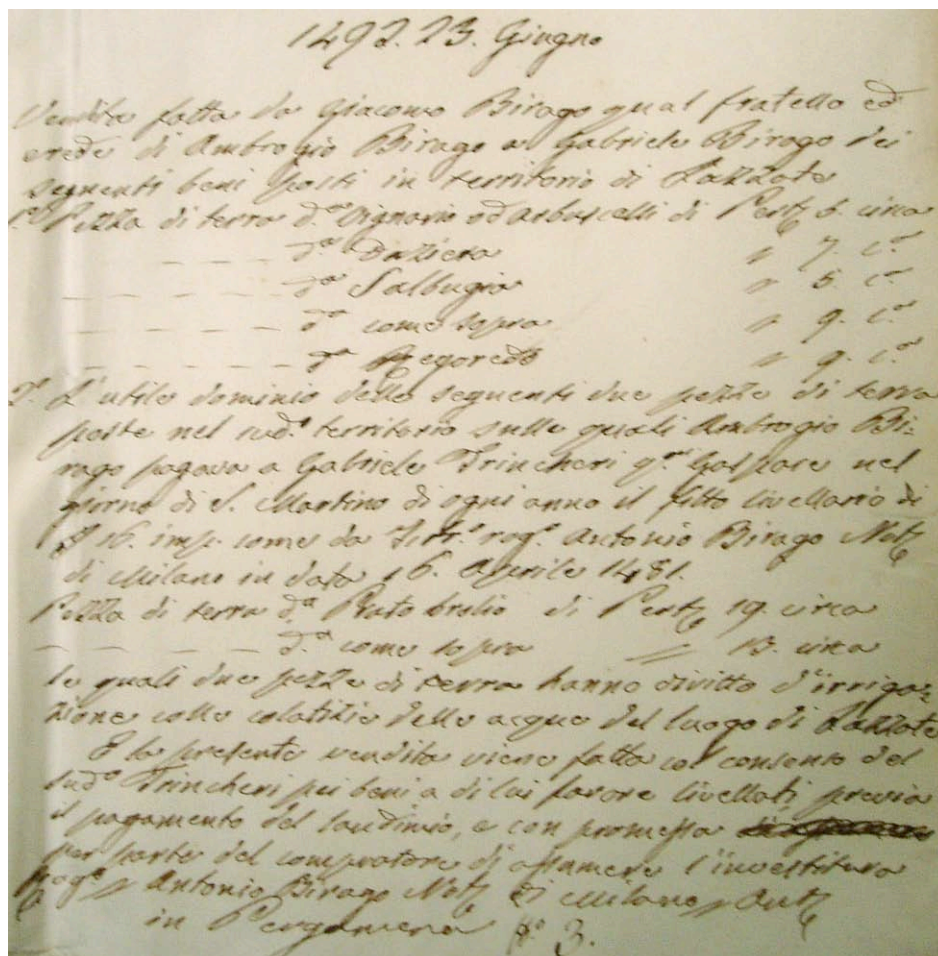 1492. 23. Giugno
Vendita fatta da Giacomo Birago qual fratello ed
erede di Ambrogio Birago a Gabriele Birago dei
seguenti beni posti in territorio di Lazzate
1.° Pezza di terra d.ª Vignavio ed arbuscelli di Pert. 6. circa
— — — — — d.ª Daziera " 7. c.ª
— — — — — d.ª Salbugia " 5. c.ª
— — — — — d.ª come sopra " 9. c.ª
— — — — — d.ª Regoredo " 9. c.ª
2.° L'utile dominio delle seguenti due pezze di terra
poste nel sud.° territorio sulle quali Ambrogio Bi=
rago pagava a Gabriele Trincheri q.m Gaspare nel
giorno di S. Martino di ogni anno il fitto livellario di
£ 16. imp. come da Istr.° rog.° Antonio Birago Not.
di Milano in data 16. Aprile 1481.
Pezza di terra d.ª Prato brelio di Pert. 19. circa
— — — — — d.ª come sopra = 13. circa
le quali due pezze di terra hanno diritto d'irriga=
zione colle colatizie delle acque del luogo di Lazzate
E la presente vendita viene fatta col consenso del
sud.° Trincheri pei beni a di lui favore livellati previa
il pagamento del laudimio, e con promessa
per parte del compratore di assumere l'investitura
Rog.° " Antonio Birago Not. di Milano " Aut.
in Pergamena N.° 3.